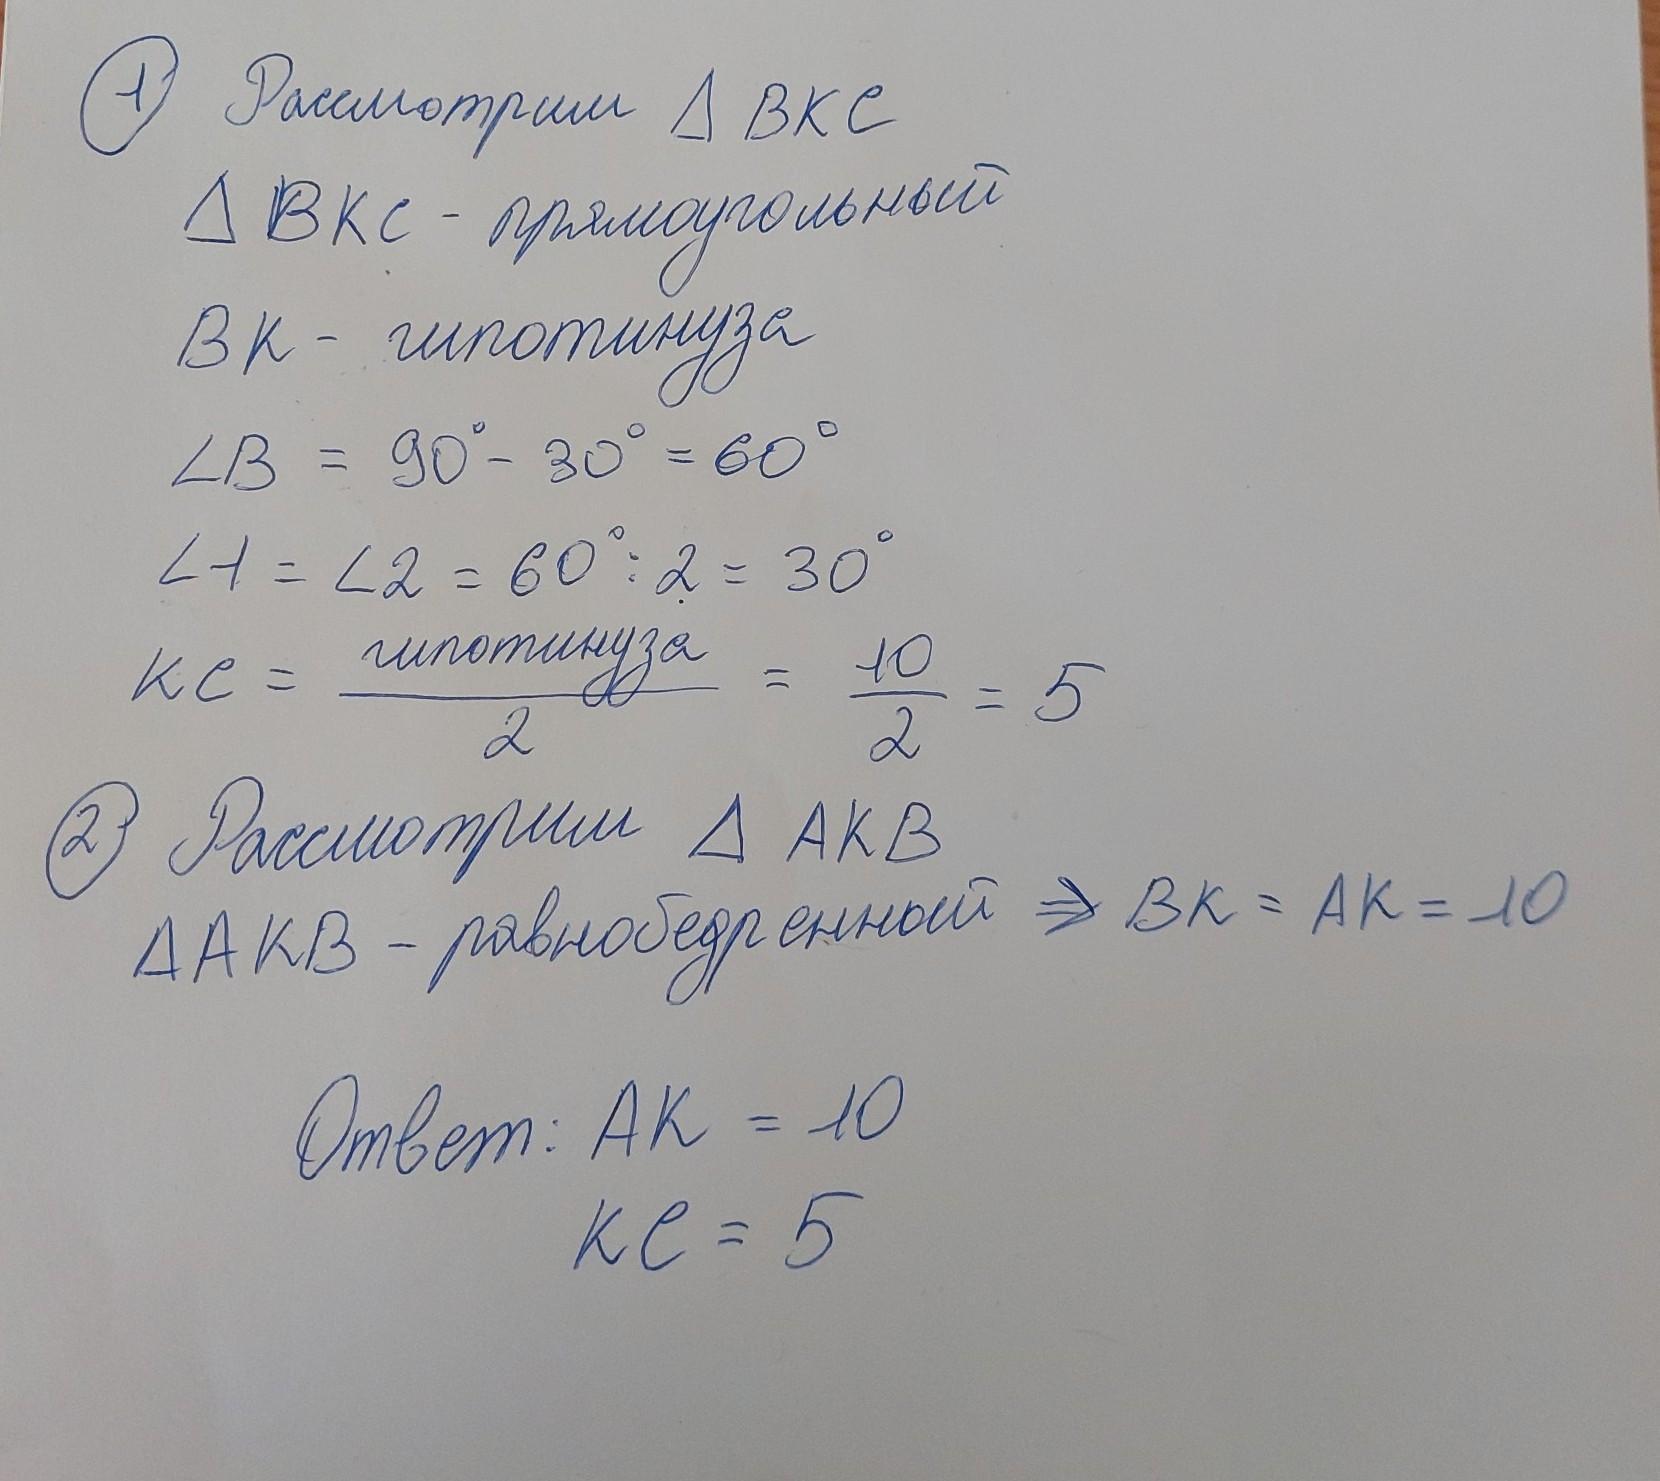 1) Рассмотрим Δ BKC
Δ BKC - прямоугольный
BK - гипотинуза
∠B = 90° - 30° = 60°
∠1 = ∠2 = 60° : 2 = 30°
KC = гипотинуза / 2 = 10 / 2 = 5
2) Рассмотрим Δ AKB
ΔAKB - равнобедренный ⇒ BK = AK = 10
Ответ: AK = 10
KC = 5